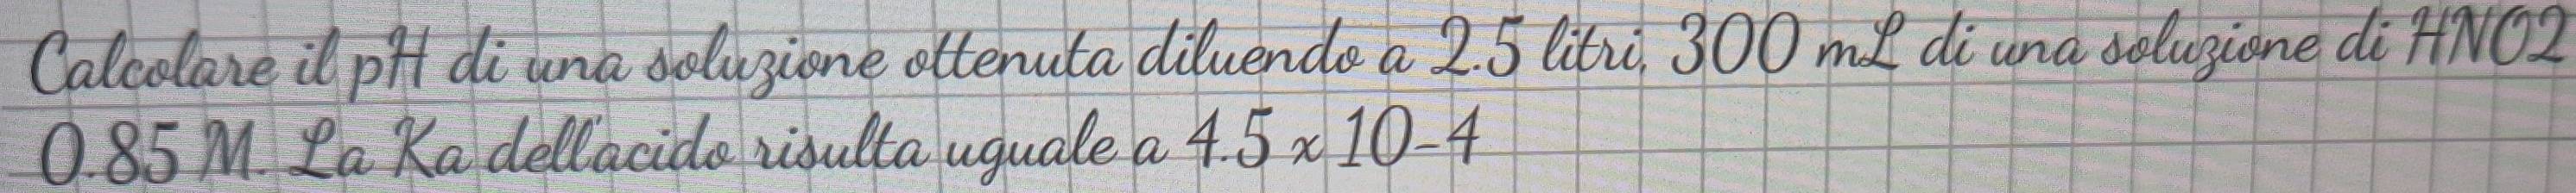 Calcolare il pH di una soluzione ottenuta diluendo a 2.5 litri, 300 mL di una soluzione di HNO2
0.85 M. La Ka dell'acido risulta uguale a 4.5 x 10-4